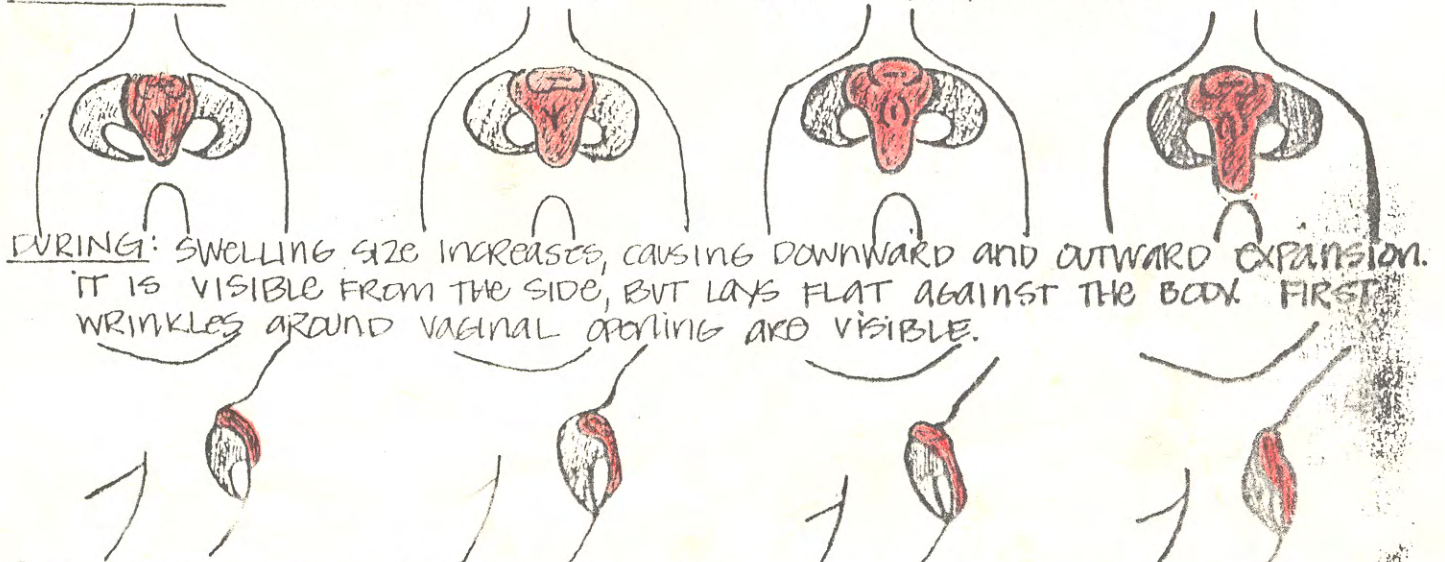 DURING: SWELLING SIZE INCREASES, CAUSING DOWNWARD AND OUTWARD EXPANSION.
IT IS VISIBLE FROM THE SIDE, BUT LAYS FLAT AGAINST THE BODY. FIRST
WRINKLES AROUND VAGINAL OPENING ARE VISIBLE.